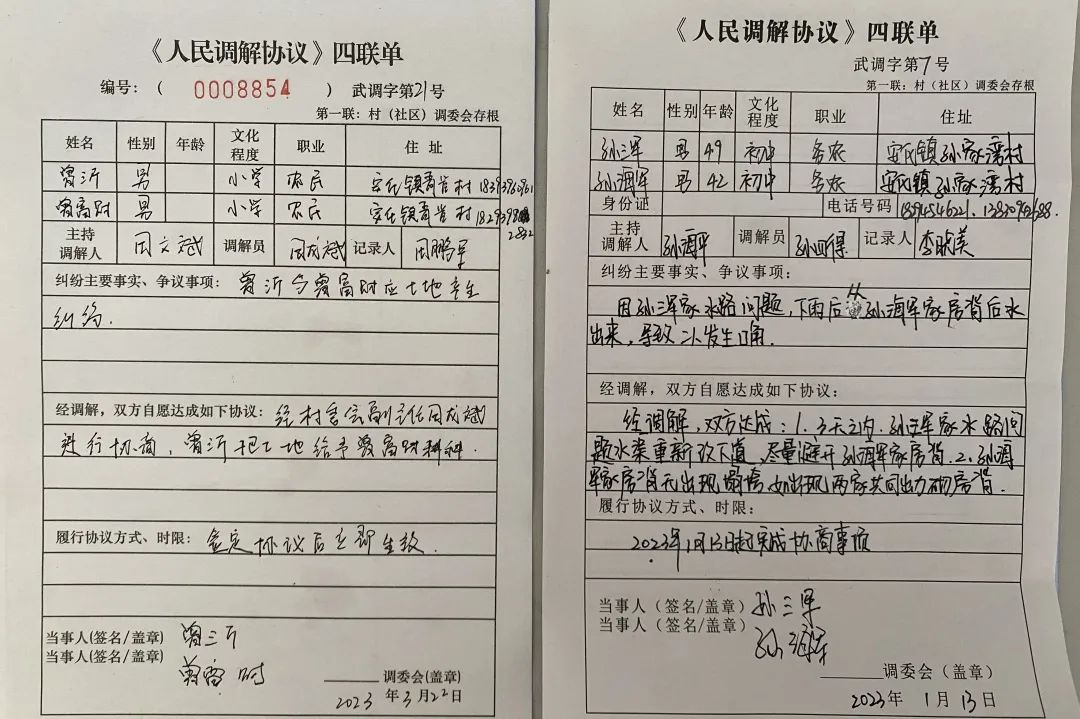 《人民调解协议》四联单
编号：（ 0008854 ） 武调字第21号
第一联：村（社区）调委会存根
姓名 性别 年龄 文化程度 职业 住 址
男 小学 农民 安化镇 村
男 小学 农民 安化镇 村
主持调解人 调解员 周成斌 记录人 周鹏军
纠纷主要事实、争议事项：
纠纷.
经调解，双方自愿达成如下协议：经村委会副主任周成斌
进行协商，
履行协议方式、时限：签定协议后立即生效.
当事人(签名/盖章)
当事人(签名/盖章)
调委会(盖章)
2023 年 3 月 22 日
《人民调解协议》四联单
武调字第7号
第一联：村（社区）调委会存根
姓名 性别 年龄 文化程度 职业 住址
孙三军 男 49 初中 务农 安化镇孙家湾村
孙海军 男 42 初中 务农 安化镇孙家湾村
身份证 电话号码
主持调解人 孙 调解员 孙四得 记录人 李
纠纷主要事实、争议事项：
因孙三军家水路问题，下雨后从孙海军家房背后水
出来，导致二人发生口角.
经调解，双方自愿达成如下协议：
经调解，双方达成：1.3天之内.孙三军家水路问
题水渠重新改下道，尽量避开孙海军家房背.2.孙海
军家房背无出现塌垮，如出现两家共同出力砌房背.
履行协议方式、时限：
2023年1月13日起完成协商事项
当事人（签名/盖章）孙三军
当事人（签名/盖章）孙海军
调委会（盖章）
2023 年 1 月 13 日